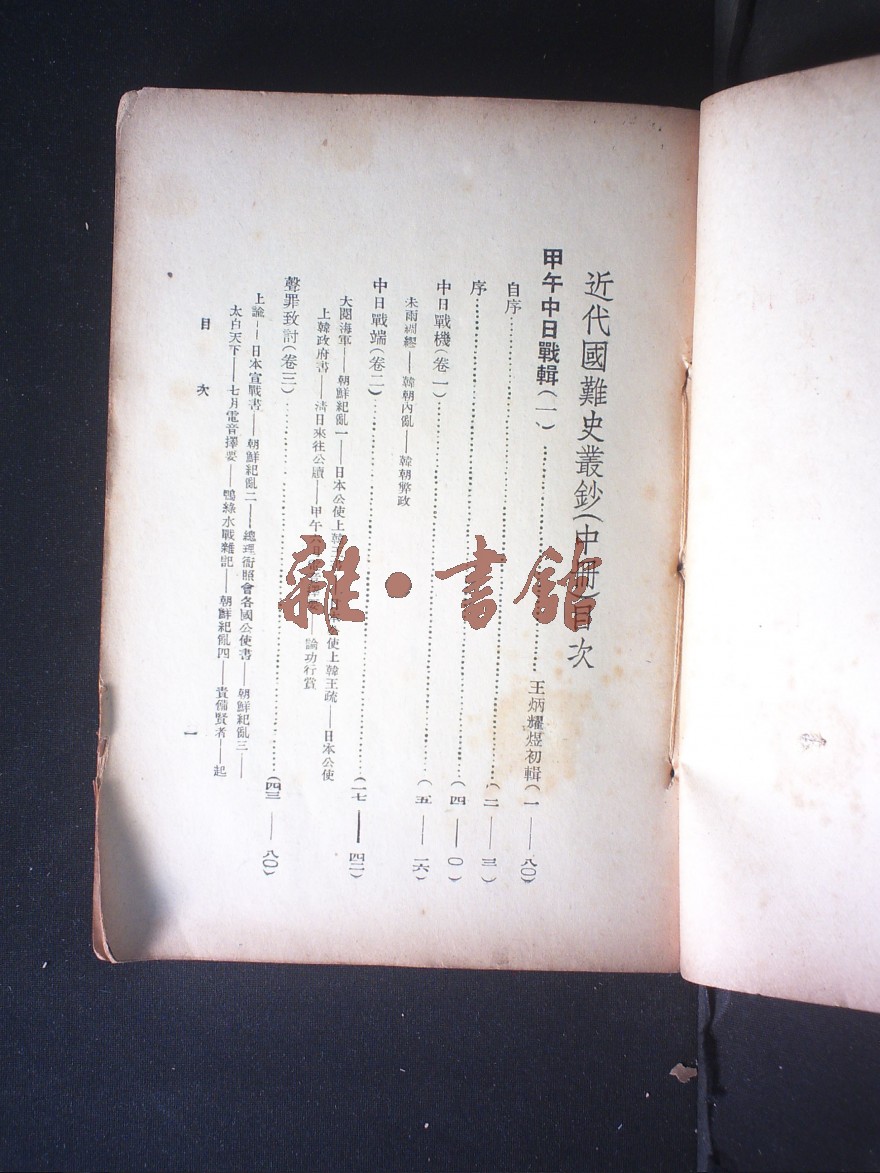 近代國難史叢鈔(中冊)目次
甲午中日戰輯(一)……王炳耀煜初輯(一——八〇)
自序……(二——三)
序……(四——〇)
中日戰機(卷一)……(五——一六)
未雨綢繆——韓朝內亂——韓朝弊政
中日戰端(卷二)……(一七——四二)
大閱海軍——朝鮮紀亂一——日本公使上韓王 使上韓王疏——日本公使
上韓政府書——清日來往公牘——甲午六月 論功行賞
聲罪致討(卷三)……(四三——八〇)
上諭——日本宣戰書——朝鮮紀亂二——總理衙照會各國公使書——朝鮮紀亂三——
太白天下——七月電音擇要——鴨綠水戰雜記——朝鮮紀亂四——責備賢者——起
目次
一
雜·書館